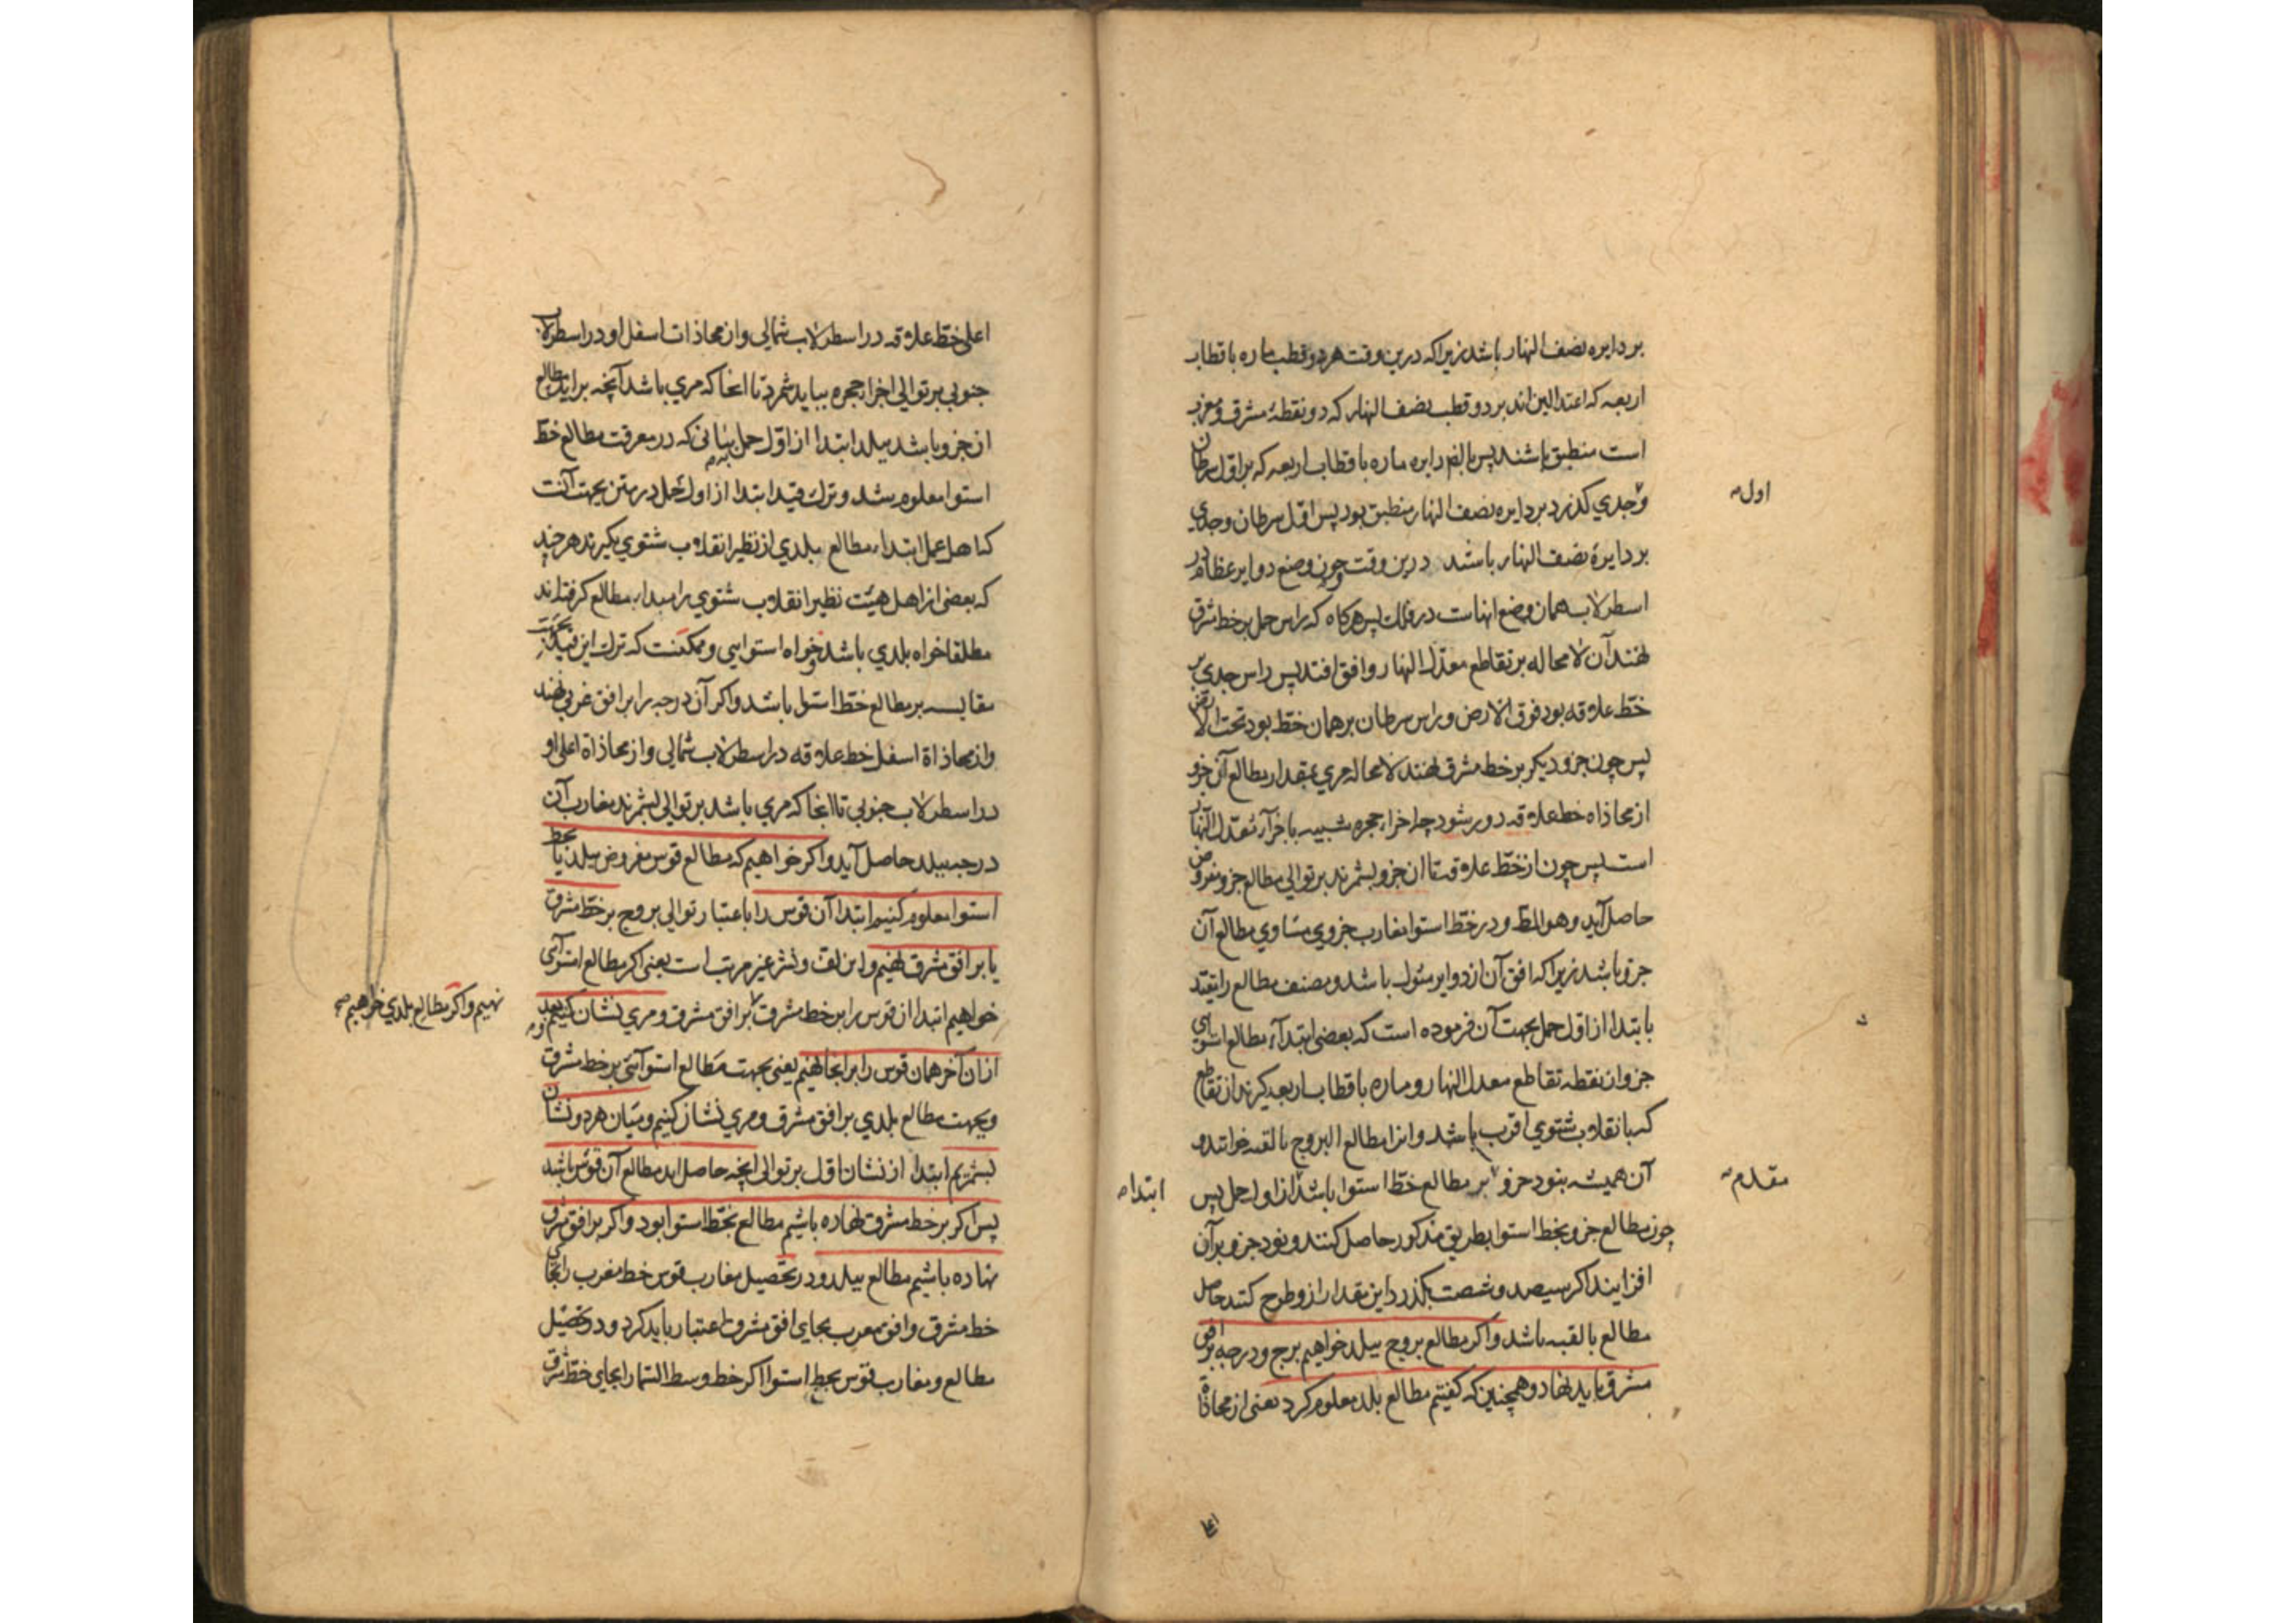 بر دایره نصف النهار باشد زیرا که درین وقت هر دو قطب ماره باقطاب
اربعه که اعتدالین اند بر دو قطب نصف النهار که دو نقطهٔ مشرق و مغرب
است منطبق باشند پس بالضر دایره ماره باقطاب اربعه که بر اول سرطان
و جدي کذرد بر دایره نصف النهار منطبق بود پس اول سرطان و جدي
اول
بر دایرهٔ نصف النهار باشند درین وقت و چون وضع دوایر عظام در
اسطرلاب همان وضع انهاست در فلک پس هرکاه که راس حمل بر خط مشرق
نهند آن لا محاله بر تقاطع معدل النهار و افق افتد پس راس جدي بر
خط علاقه بود فوق الارض و راس سرطان بر همان خط بود تحت الارض
پس چون جزو دیکر بر خط مشرق نهند لا محاله مري بمقدار مطالع آن جزو
از محاذاه خط علاقه دور شود چه اجزاء حجره شبیه باجزآء معدل النهار
است پس چون از خط علاقه تا ان جزو بشمرند بر توالي مطالع جزو مفروض
حاصل آید و هو المط و در خط استوا مغارب جزوي مساوي مطالع آن
جزو باشد زیرا که افق آن از دوایر میول باشد و مصنف مطالع را بقید
بابتدا از اول حمل بجهت آن فرموده است که بعضی ابتدآء مطالع استوایی
جزو از نقطه تقاطع معدل النهار و ماره باقطاب اربعه کیرند از تقاطع
که بانقلاب شتوي اقرب باشد و انرا مطالع البروج بالقبه خوانند و
آن همیشه بنود جزو بر مطالع خط استوا باشد از اول حمل پس
مقدم
ابتدا
چون مطالع جزو بخط استوا بطریق مذکور حاصل کنند و نود جزو بر آن
افزایند اکر سیصد و شصت بکذرد این مقدار ازو طرح کنند حاصل
مطالع بالقبه باشد و اکر مطالع بروج ببلد خواهیم برج و درجه بر افق
مشرق باید نهاد و همچنین که کفتیم مطالع بلد معلوم کرد یعنی از محاذاة
اعلی خط علاقه در اسطرلاب شمالی و از محاذات اسفل او در اسطرلاب
جنوبي بر توالي اجزاء حجره بباید شمرد تا انجا که مري باشد آنچه برآید مطالع
ان جزو باشد ببلد ابتدا از اول حمل بیانی که در معرفت مطالع خط
استوا معلوم شد و ترک قید ابتدا از اول حمل در متن بجهت آنست
که اهل عمل ابتداء مطالع بلدي از نظیر انقلاب شتوي بکیرند هر چند
که بعضی از اهل هیئت نظیر انقلاب شتوي را مبداء مطالع کرفته اند
مطلقا خواه بلدي باشد و خواه استوایی و ممکنست که ترک این قید بجهت
مقایسه بر مطالع خط استوا باشد و اکر آن درجه را بر افق غربي نهند
و از محاذاة اسفل خط علاقه در اسطرلاب شمالي و از محاذاة اعلی او
در اسطرلاب جنوبي تا انجا که مري باشد بر توالي بشمرند مغارب آن
درجه ببلد حاصل آید و اکر خواهیم که مطالع قوس مفروض ببلد یا بخط
استوا معلوم کنیم ابتدا آن قوس را باعتبار توالي بروج بر خط مشرق
یا بر افق مشرق نهیم و این لف و نشر غیر مرتب است یعنی اکر مطالع استوآئی
خواهیم ابتدا از قوس را بر خط مشرق بر افق مشرق و مري نشان کنیم و بعد
نهیم و اکر مطالع بلدي خواهیم
ازان آخر همان قوس را بر انجا نهیم یعنی بجهت مطالع استوآئی بر خط مشرق
و بجهت مطالع بلدي بر افق مشرق و مري نشان کنیم و میان هر دو نشان
بشمریم ابتدا از نشان اول بر توالی انچه حاصل اید مطالع آن قوس باشد
پس اکر بر خط مشرق نهاده باشیم مطالع بخط استوا بود و اکر بر افق مشرق
نهاده باشیم مطالع ببلد و در تحصیل مغارب قوس خط مغرب را بجای
خط مشرق و افق مغرب بجای افق مشرق اعتبار باید کرد و در تحصیل
مطالع و مغارب قوس بخط استوا اکر خط وسط السما را بجای خط مشرق